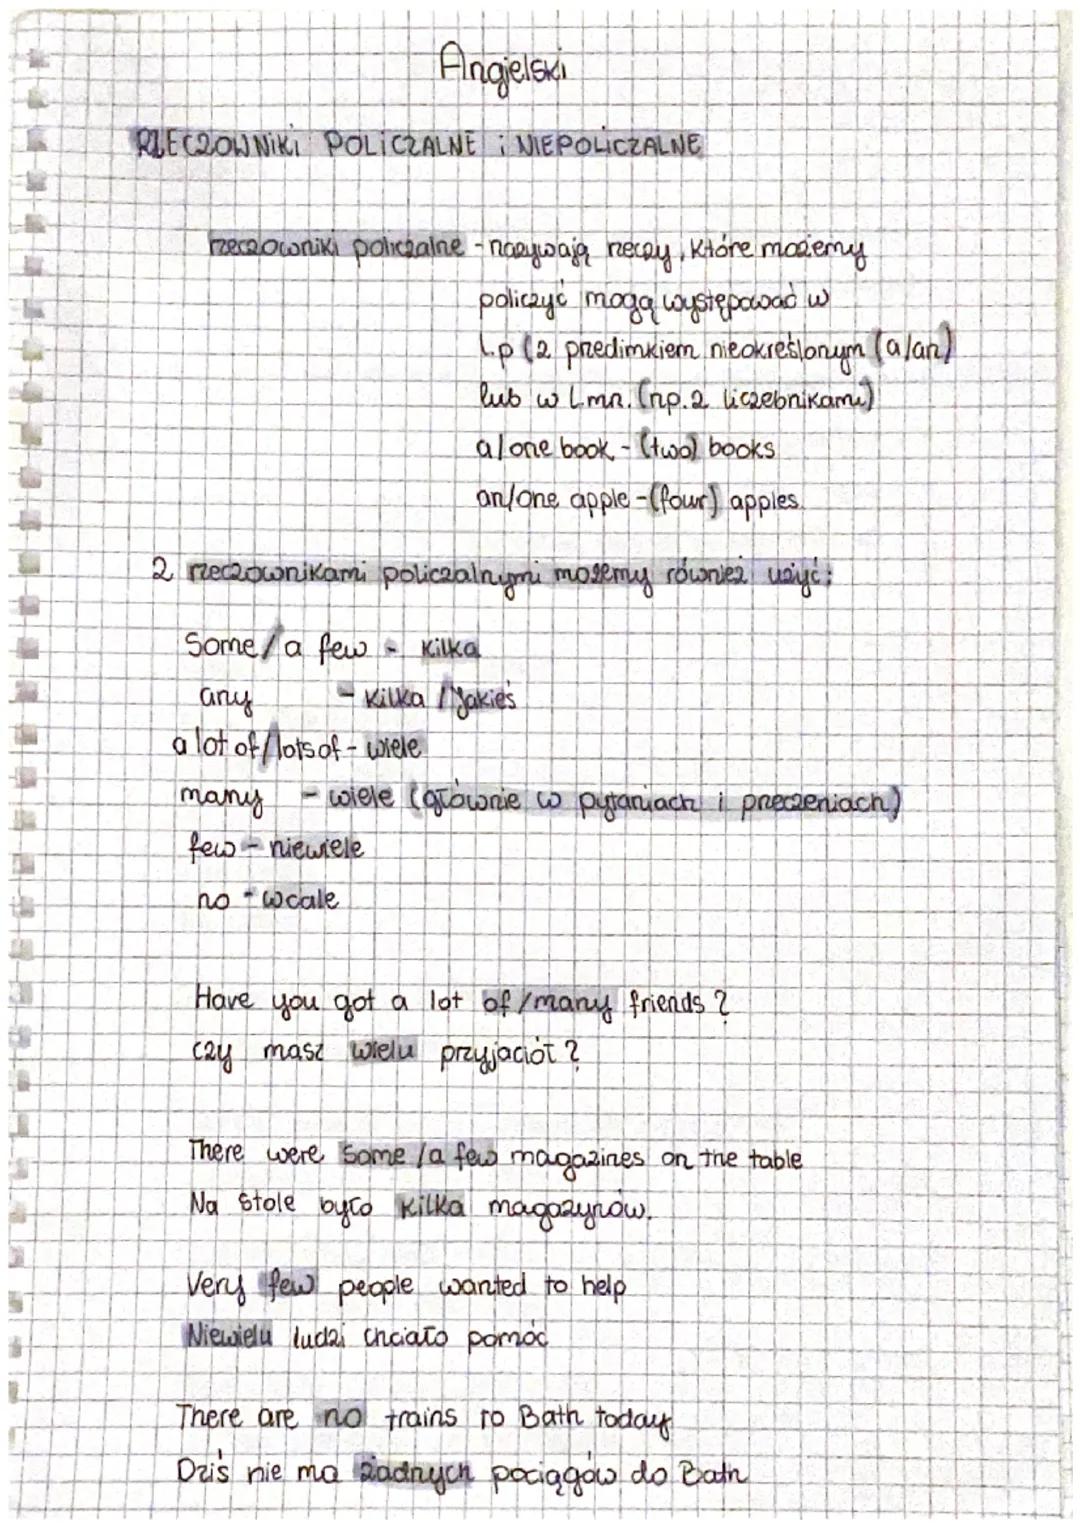 Angielski
RZECZOWNIKI POLICZALNE i NIEPOLICZALNE
rzeczowniki policzalne - nazywają rzeczy, które możemy
policzyć mogą występować w
l.p (z przedimkiem nieokreślonym (a/an)
lub w l.mn. (np. z liczebnikami)
a/one book - (two) books
an/one apple - (four) apples.
Z rzeczownikami policzalnymi możemy również użyć:
Some / a few - kilka
any - kilka / jakieś
a lot of / lots of - wiele
many - wiele (głównie w pytaniach i przeczeniach)
few - niewiele
no - wcale
Have you got a lot of / many friends?
Czy masz wielu przyjaciół?
There were some / a few magazines on the table
Na stole było kilka magazynów.
Very few people wanted to help
Niewielu ludzi chciało pomóc
There are no trains to Bath today
Dziś nie ma żadnych pociągów do Bath